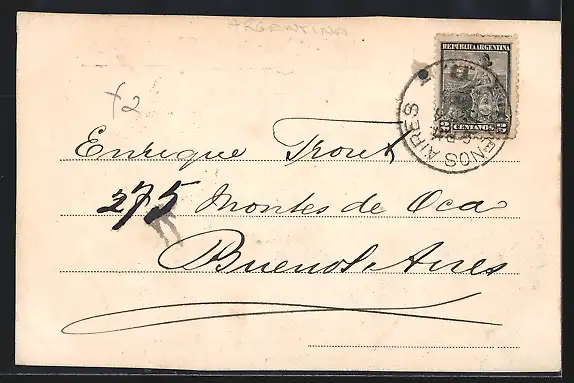 ARGENTINA
REPUBLICA ARGENTINA
CENTAVOS
BUENOS AIRES
+2
Enrique Trout
275 Montes de Oca
Buenos Aires